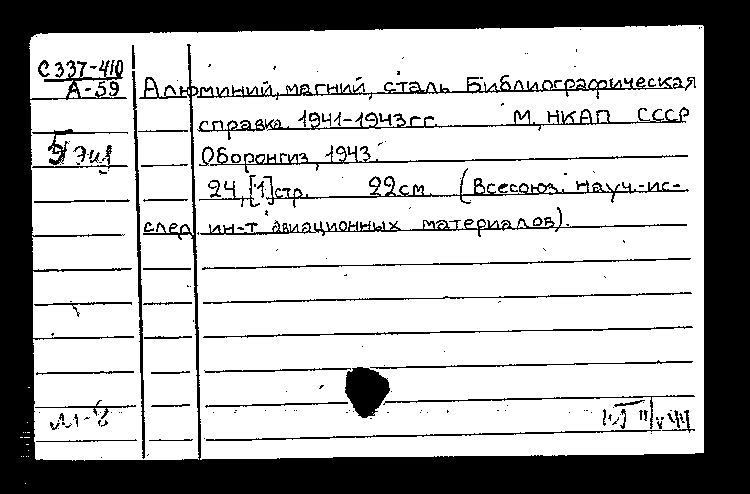 С 337-410
А-59 Алюминий, магний, сталь Библиографическая
справка 1941-1943 гг. М., НКАП СССР
Оборонгиз, 1943.
24, [1] стр. 22 см. (Всесоюз. науч.-ис-
след ин-т авиационных материалов).
5 экз
м-8